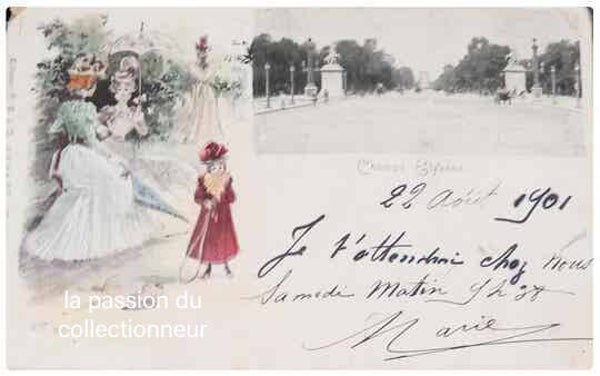 Champs Elysées
22 Août 1901
Je t'attendrai chez nous
Samedi Matin 9h
Marie
la passion du
collectionneur